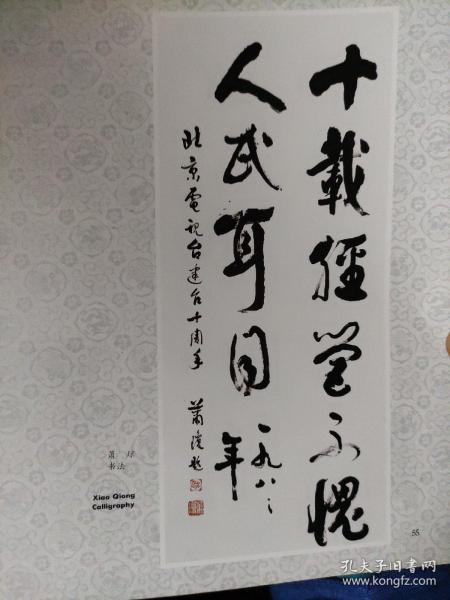 十載經營不愧
人民耳目
一九八
年
北京電視台建台十周年
蕭瓊題
萧 琼
书法
Xiao Qiong
Calligraphy
55
孔夫子旧书网
www.kongfz.com